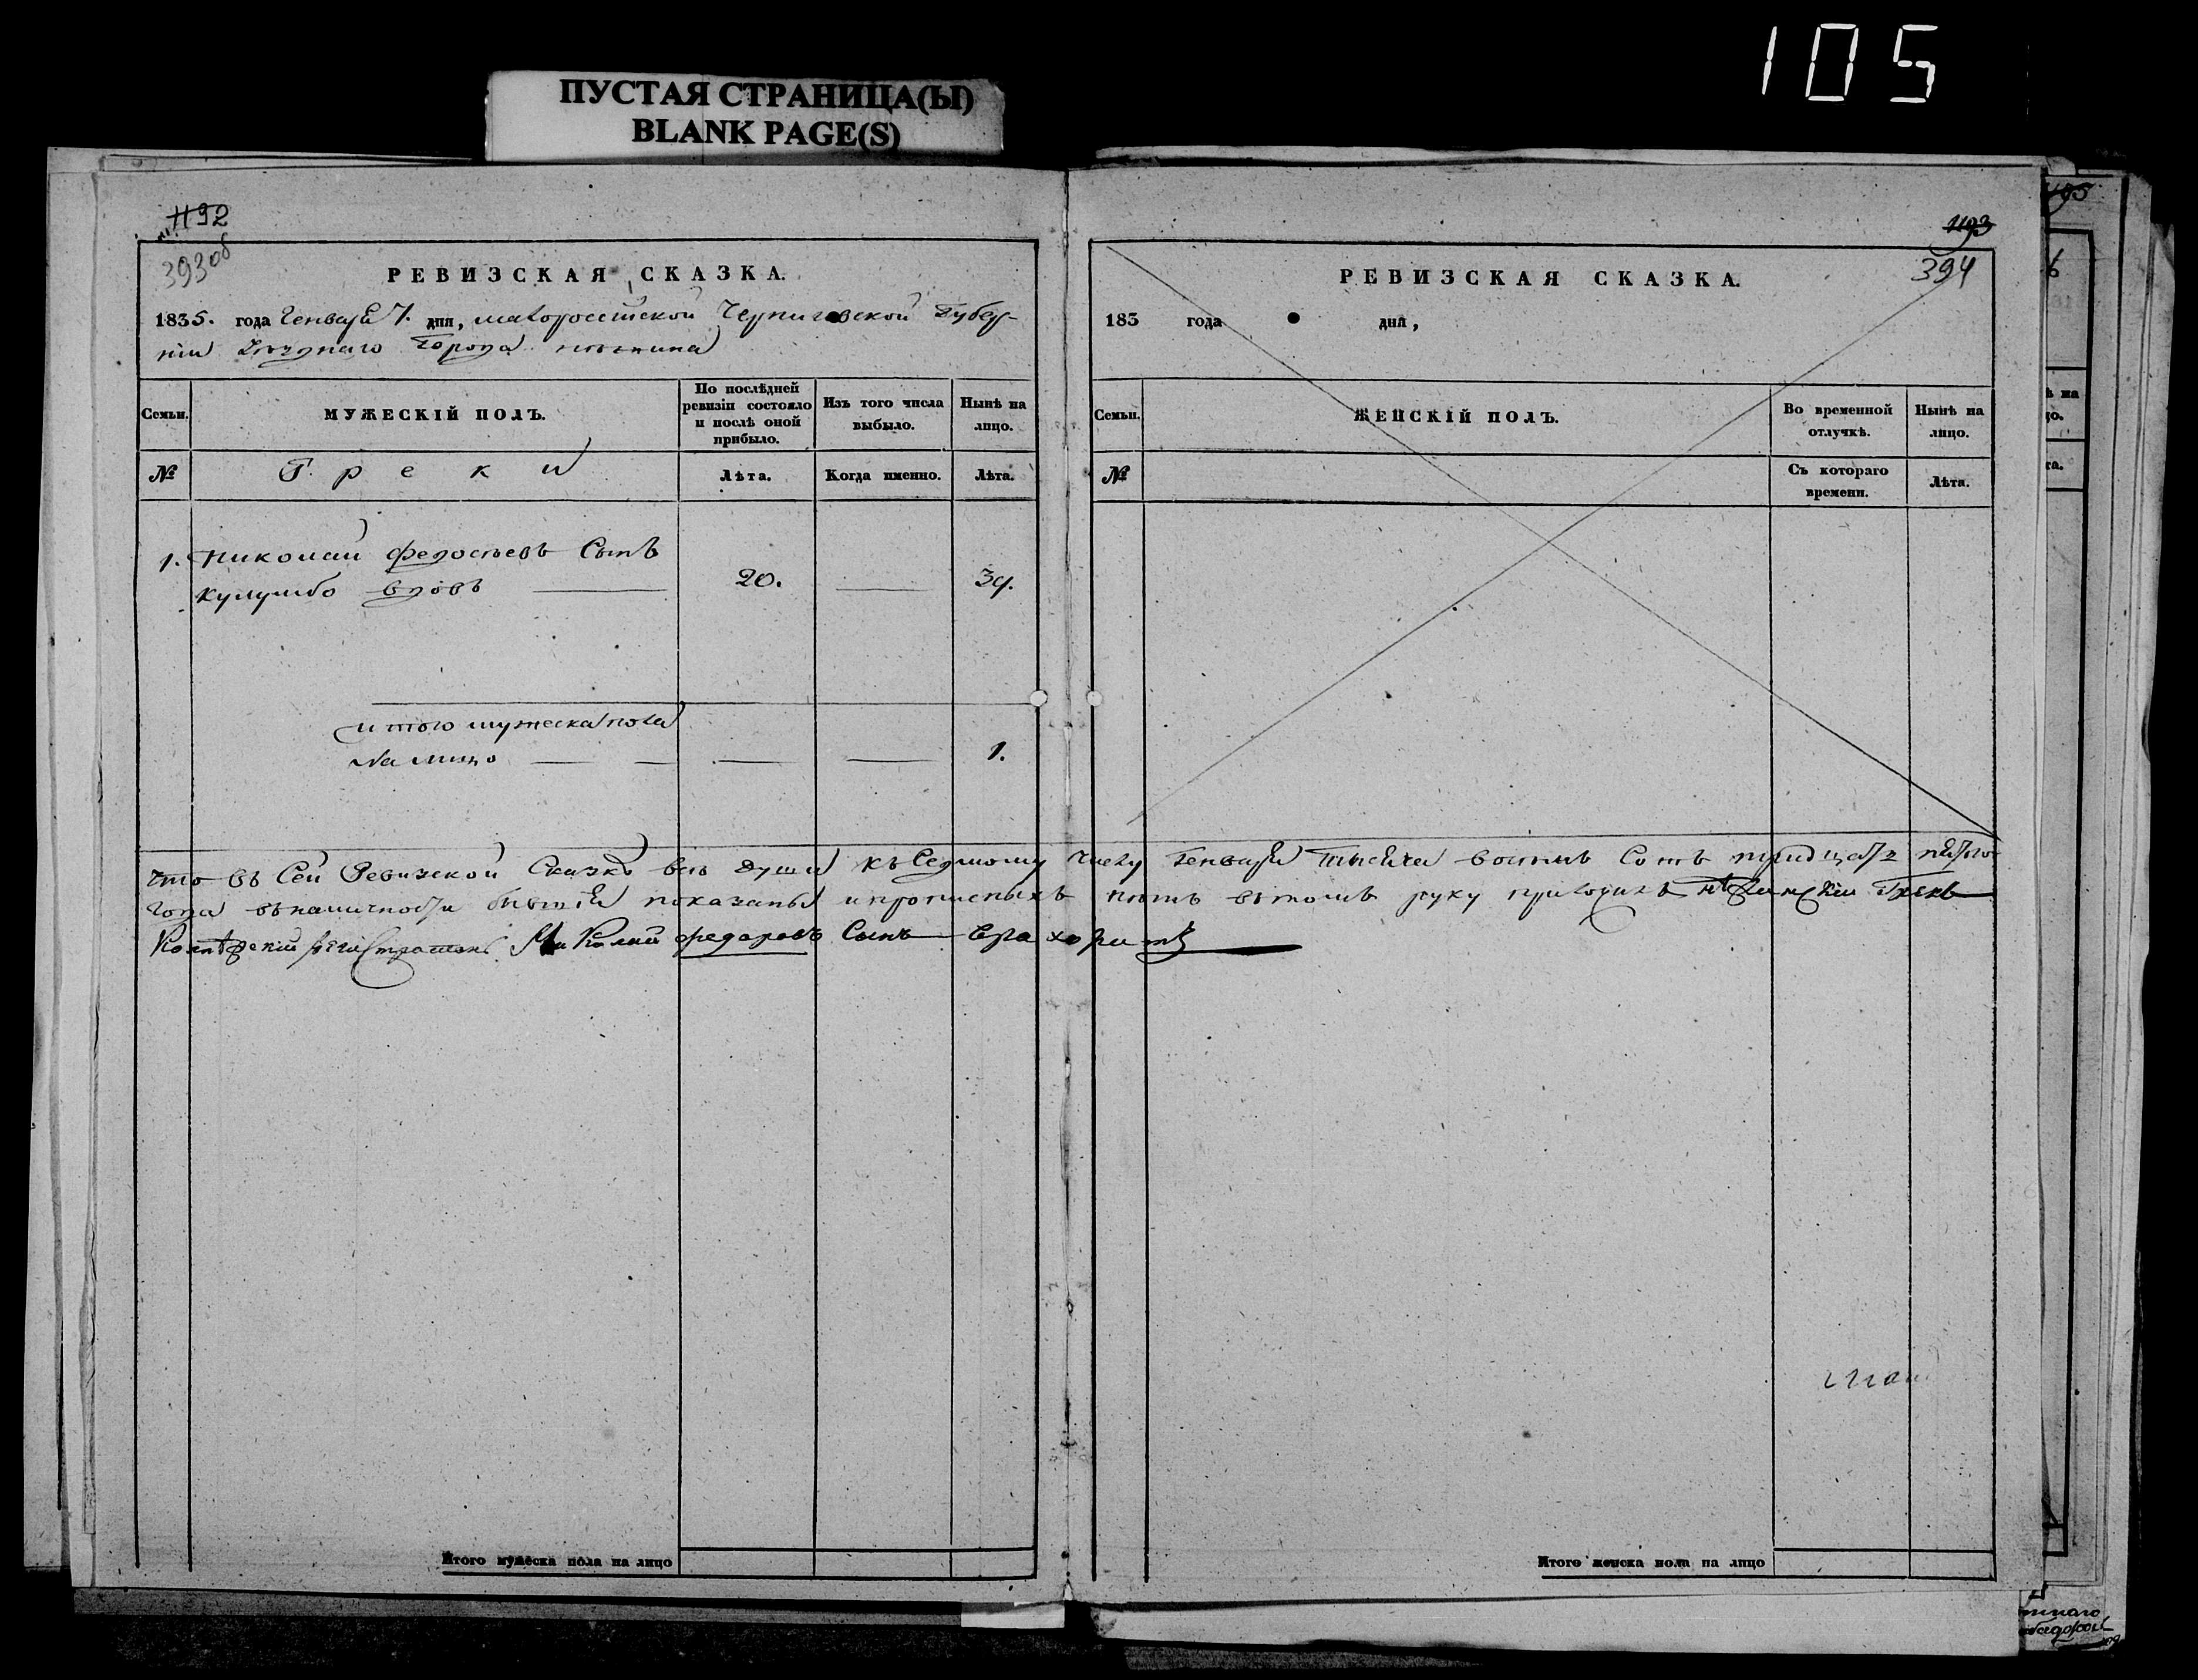 105
ПУСТАЯ СТРАНИЦА(Ы)
BLANK PAGE(S)
1192
393об
РЕВИЗСКАЯ СКАЗКА.
1835. года Генваря 7. дня, малороссійской Черниговской Губер-
ніи уезднаго Города нежина
Семьи.
МУЖЕСКІЙ ПОЛЪ.
По послѣдней ревизіи состояло и послѣ оной прибыло.
Изъ того числа выбыло.
Нынѣ на лицо.
№
Греки
Лѣта.
Когда именно.
Лѣта.
1. Николай Федосѣевъ Сынъ
вдовъ 20. 39.
итого мужеска пола
на лицо 1.
1193
394
РЕВИЗСКАЯ СКАЗКА.
183 года дня,
Семьи.
ЖЕНСКІЙ ПОЛЪ.
Во временной отлучкѣ.
Нынѣ на лицо.
№
Съ котораго времени.
Лѣта.
что въ Сей Ревизской Сказкѣ всѣ души къ Седмому числу Генваря тысяча восемь Сотъ тридцать пятого
года въ наличности бывшія показаны и прописныхъ нѣтъ въ томъ руку приложилъ нѣжинскій Грекъ
Колѣжскій регистраторъ Николай федоровъ Сынъ
Итого мужеска пола на лицо
Итого женска пола на лицо